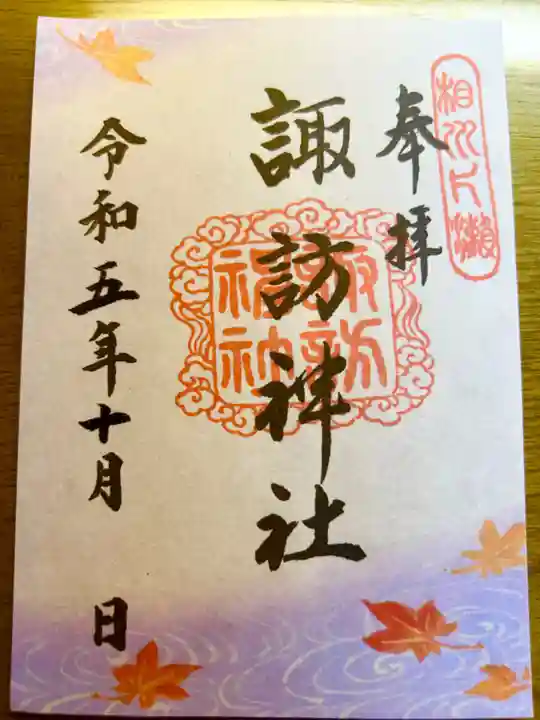 相州片瀬
奉拝
諏訪神社
諏訪
神社
令和五年十月 日